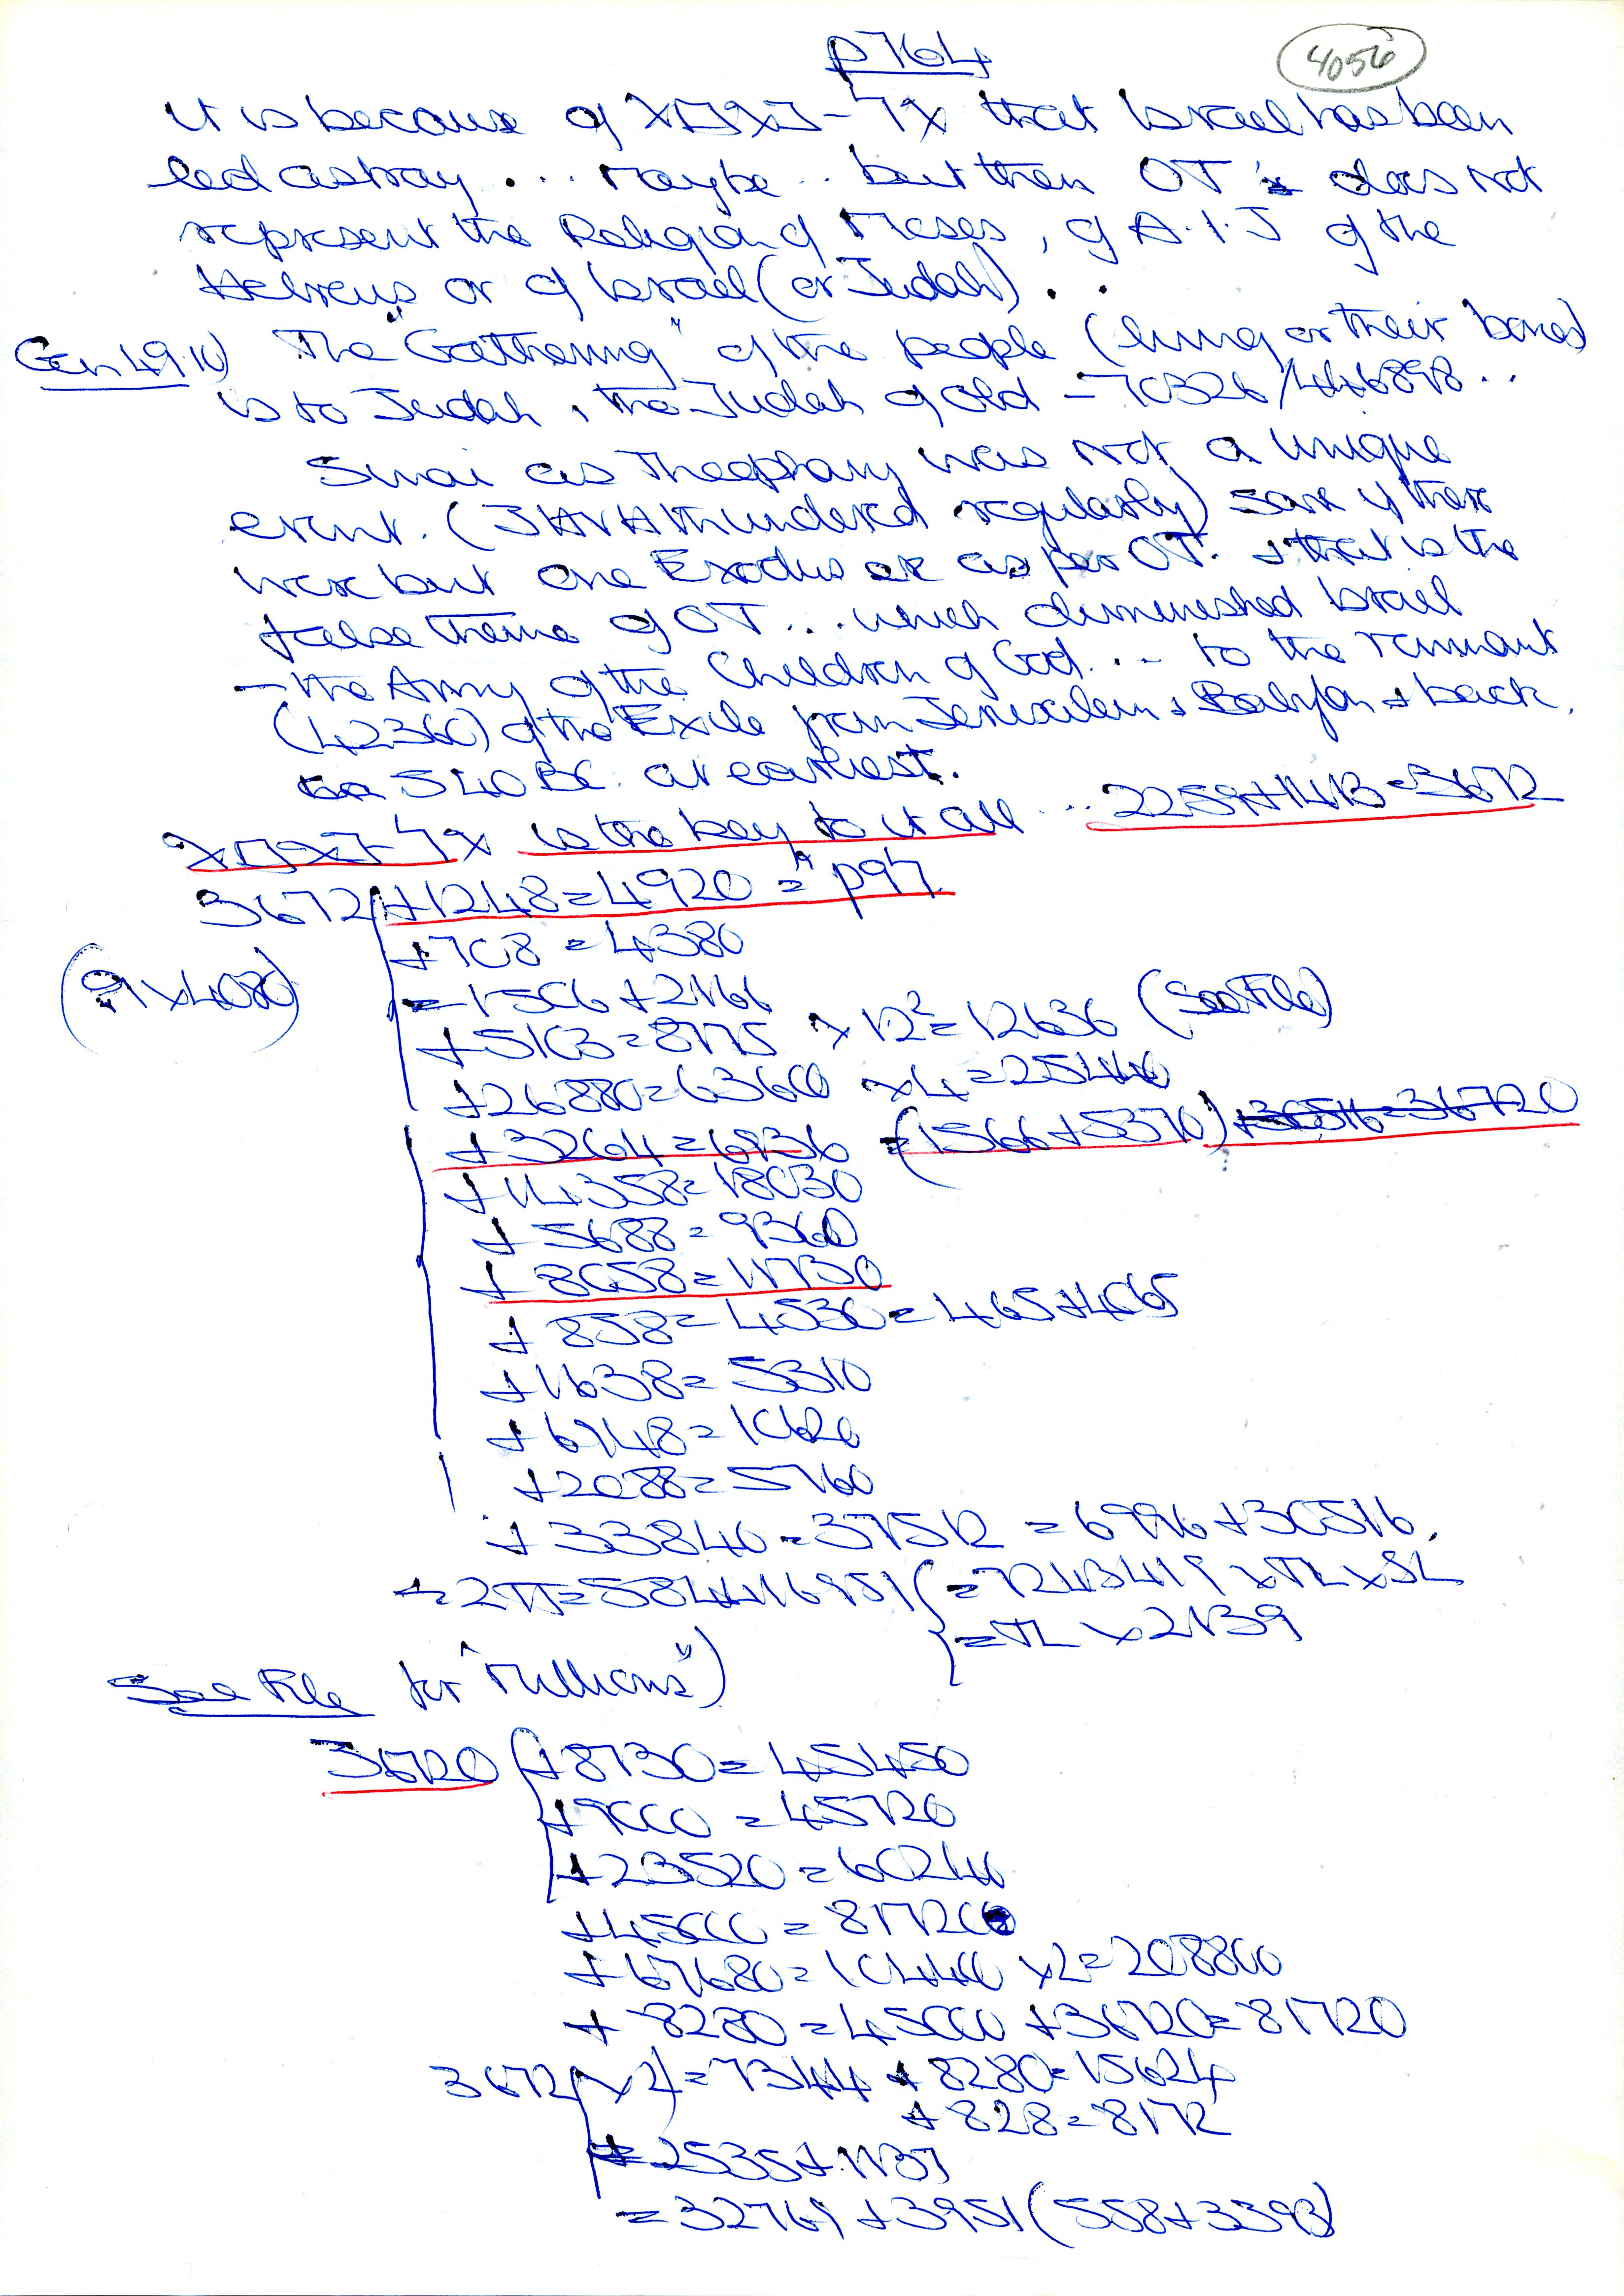 p764
4056
it is because of that Israel has been
led astray ... maybe .. but then OT does not
represent the Religion of Moses, of A.I.J of the
Hebrews or of Israel (or Judah) ..
Gen 49.10) The "Gathering" of the people (living or their bones)
is to Judah, the Judah of old = 76326/446898 ..
Sinai as Theophany was not a unique
event. (JHVH thundered regularly) save if there
were but one Exodus as per OT. + that is the
false theme of OT ... which diminished Israel
- the Army of the Children of God ... to the remnant
(42360) of the Exile from Jerusalem & Babylon & back.
540 BC. at earliest.
is the key to it all ... 2259+1413=3672
3672 +1248=4920 = "p97
+708=4380
(9 x 4080)
=1506+2166
+5103=8775 x 12²=12636 (See File)
+2688=6360 x4=25440
+3264=6936 =(1566+5370) +30516=36720
+14358=18030
+5688=9360
+8058=11730
+858=4530=465+4065
+1638=5310
+6948=10620
+2088=5760
+33840=37512 =6996+30516.
÷2π=584.416951 (=7.243419 x TL x SL
=TL x 2139
See File for "Millions")
36720 (+8730=45450
+9000=45720
+23520=60240
+45000=81720
+67680=104400 x2=208800
+8280=45000 +36720=81720
3672 (x2)=7344 +8280=15624
+828=8172
=2535+1137
=32769+3951(558+3393)